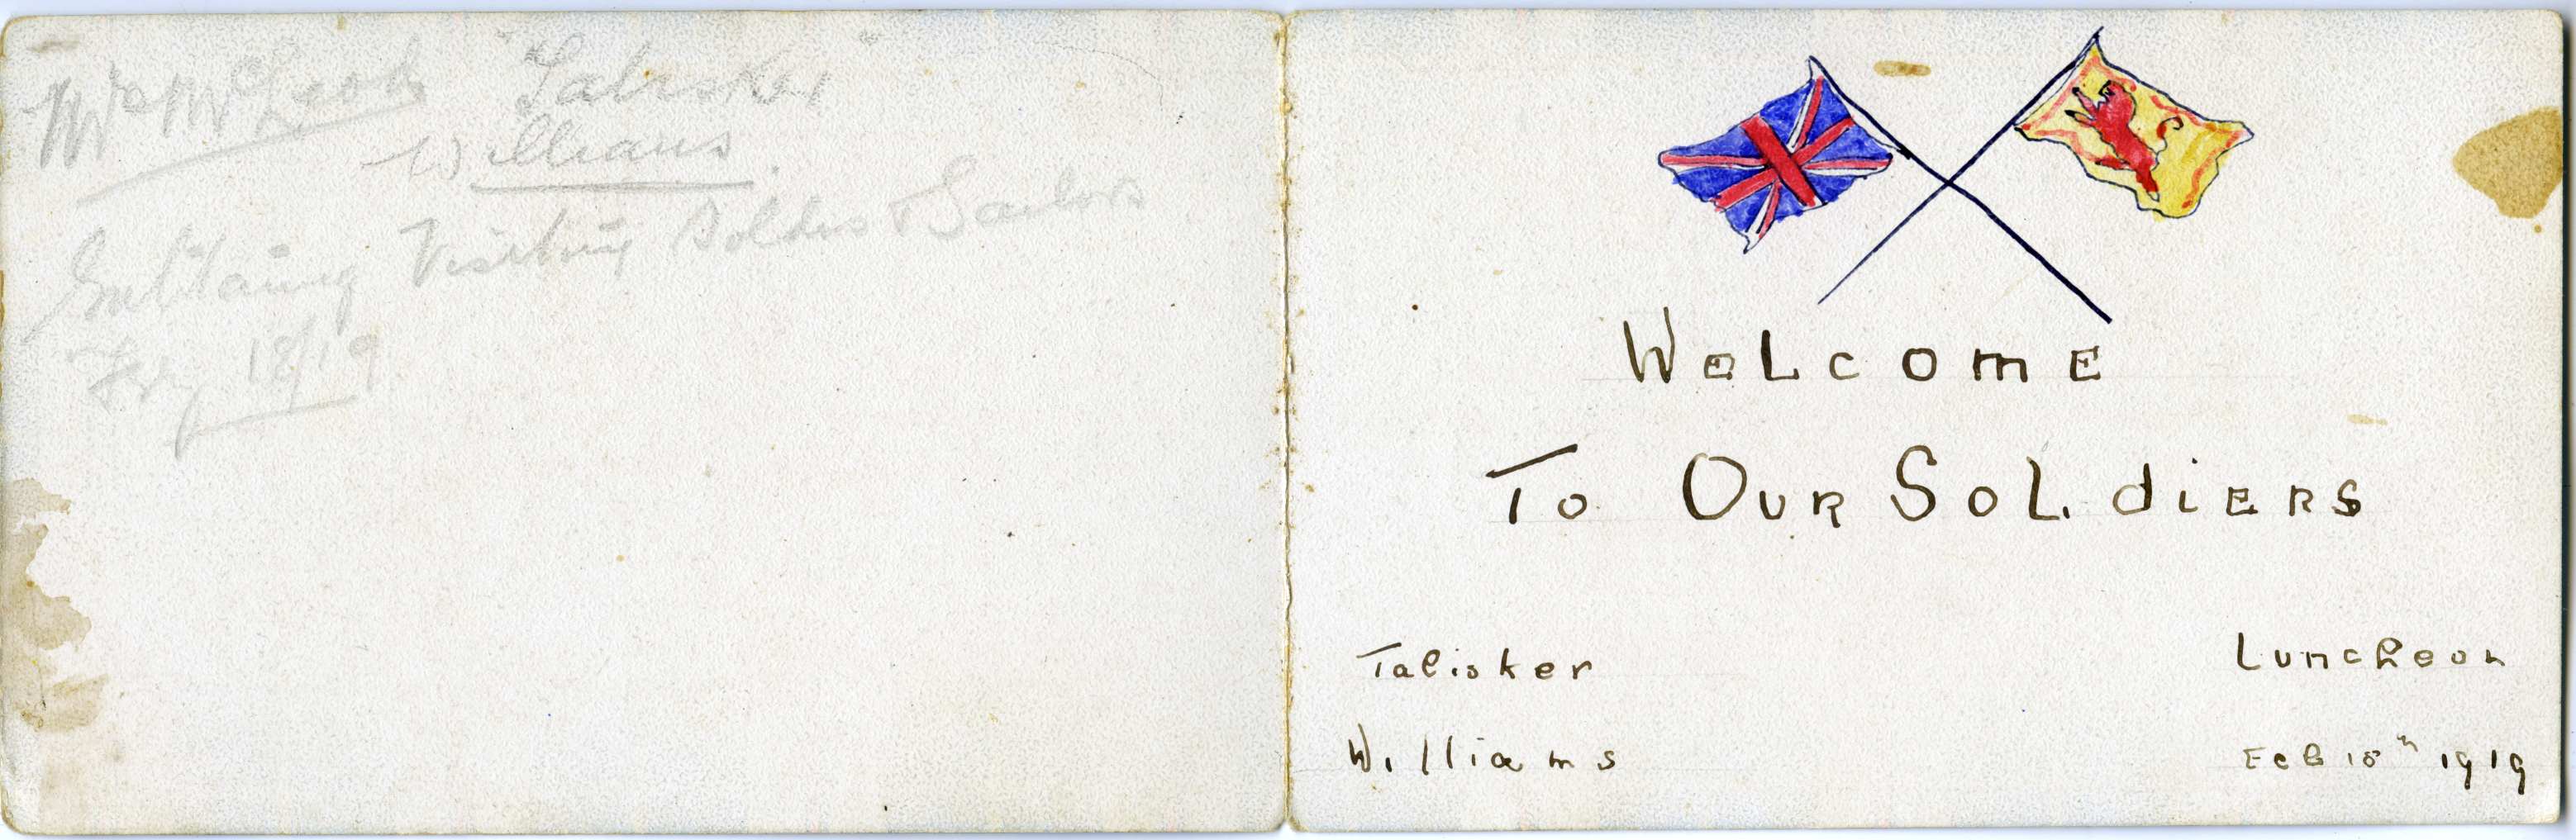 Mrs McLeod "Talisker"
Williams.
Visiting Soldiers & Sailors
Feby 18/19
Welcome
To Our Soldiers
Talisker
Luncheon
Williams
Feb 18th 1919